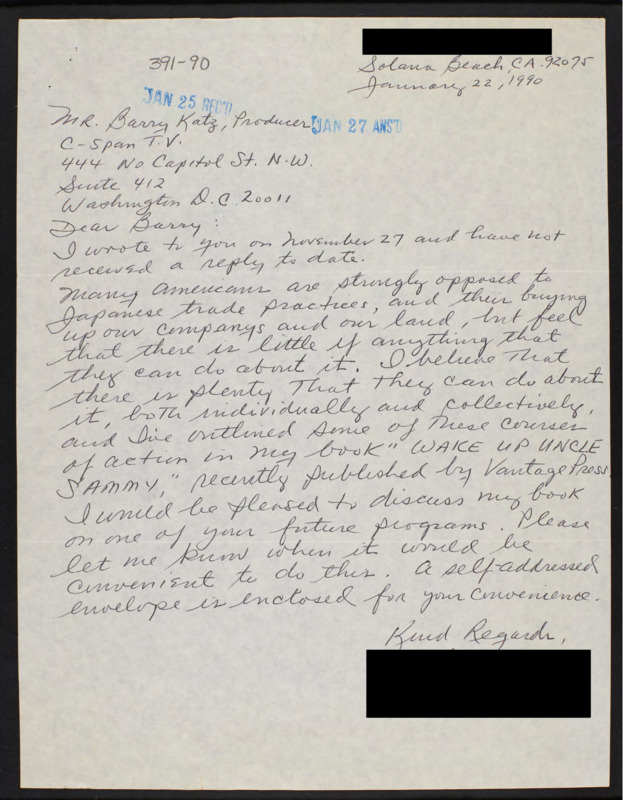 391-90
Solana Beach, CA. 92075
January 22, 1990
JAN 25 REC'D
JAN 27 ANS'D
MR. Barry Katz, Producer
C-Span T.V.
444 No Capitol St. N.W.
Suite 412
Washington D.C. 20011
Dear Barry:
I wrote to you on November 27 and have not
received a reply to date.
Many Americans are strongly opposed to
Japanese trade practices, and their buying
up our companys and our land, but feel
that there is little if anything that
they can do about it. I believe that
there is plenty that they can do about
it, both individually and collectively,
and I've outlined some of these courses
of action in my book "WAKE UP UNCLE
SAMMY," recently published by Vantage Press.
I would be pleased to discuss my book
on one of your future programs. Please
let me know when it would be
convenient to do this. A self-addressed
envelope is enclosed for your convenience.
Kind Regards,